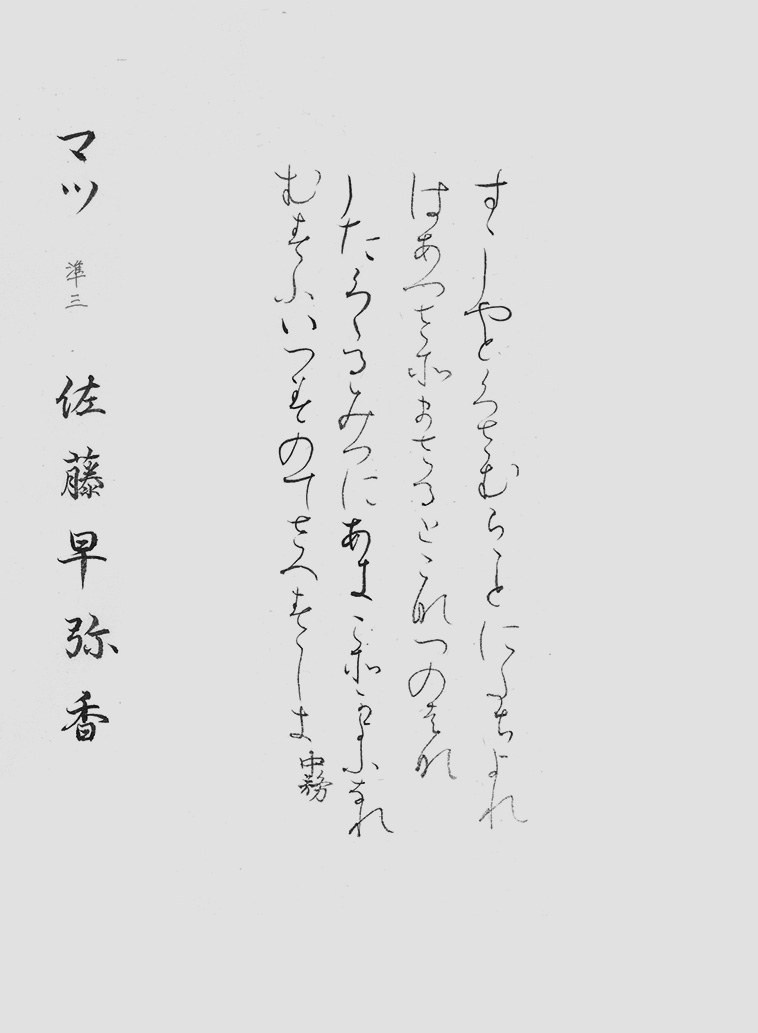 すゝしやとくさむらことにたちよれ
はあつさそまさるとこなつのはな
したくゝるみつにあきこそかよふなれ
むすふいつみのてさへすゝしき 中務
マツ 準三 佐藤早弥香